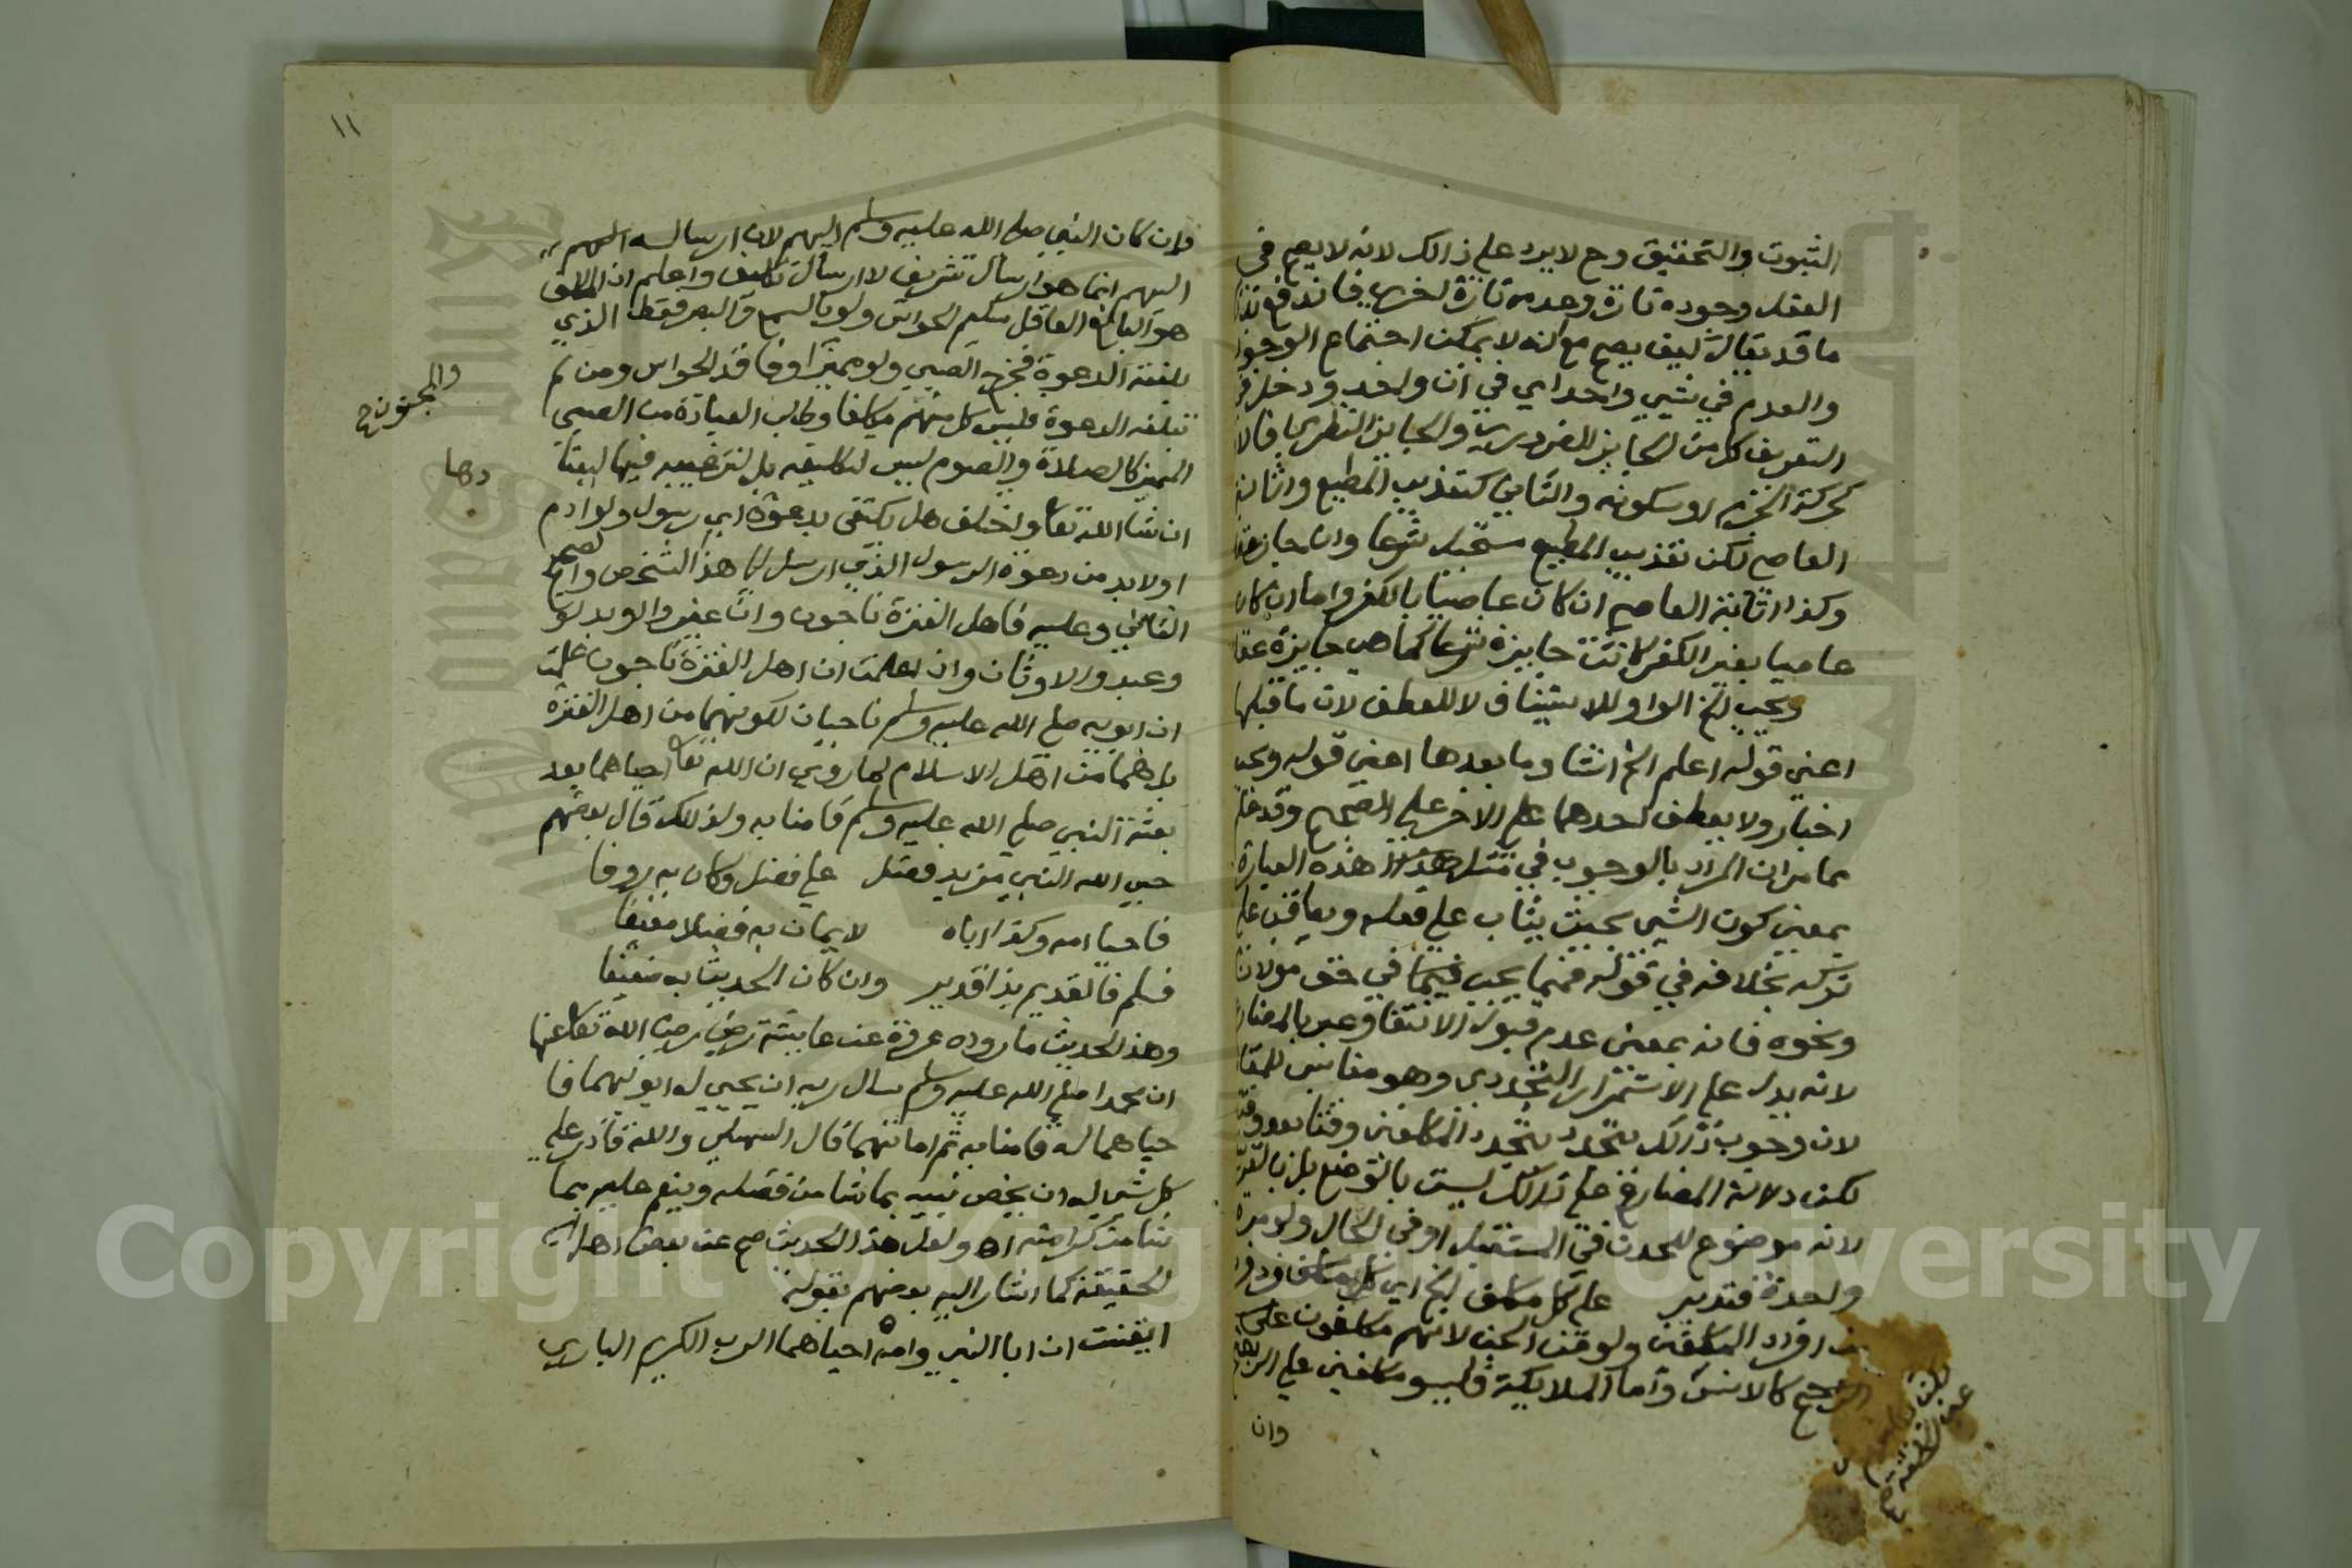 الثبوت والتحقيق وح لا يرد على ذالك لانه لا يصح في
العقل وجوده تارة وعدمه تارة اخري فاندفع بهذا
ما قد يقال كيف يصح مع انه لا يمكن اجتماع الوجود
والعدم في شيي واحد اي في ان واحد ودخل في
التعريف كل من الجايز الضروري والجايز النظري فالاول
كحركة الجرم او سكونه والثاني كتعذيب المطيع واثابة
العاصي لكن تعذيب المطيع مستحيل شرعا وان جاز عقلا
وكذا اثابة العاصي ان كان عاصيا بالكفر واما ان كان
عاصيا بغير الكفر كانت جايزة شرعا كما هي جايزة عقلا
ويجب الخ الواو للاستيناف لا للعطف لان ما قبلها
اعني قوله اعلم الخ انشا وما بعدها اعني قوله ويجب
اخبار ولا يعطف احدهما علي الاخر علي الصحيح وقد علم
مما مر ان المراد بالوجوب في مثل هذه العبارة
بمعني كون الشي بحيث يثاب علي فعله ويعاقب علي
تركه بخلافه في قوله فمما يجب فيما في حق مولانا
ونحوه فانه بمعني عدم قبول الانتفا وعبر بالمضارع
لانه يدل علي الاستمرار التجددي وهو مناسب للمقام
لان وجوب ذالك يتجدد بتجدد المكلفين وقتا بعد وقت
لكن دلالة المضارع علي ذالك ليست بالوضع بل بالقرينة
لانه موضوع للحدث في المستقبل او في الحال ولو مرة
واحدة فتدبر علي كل مكلف الخ اي كل مكلف فرد فرد
من افراد المكلفين ولو من الجن لانهم مكلفون علي
الراجح كالانس واما الملايكة فليسو مكلفين علي الراجح
وان
١١
وان كان النبي صلي الله عليه وسلم اليهم لان ارساله اليهم
اليهم انما هو ارسال تشريف لا ارسال تكليف واعلم ان المكلف
هو البالغ العاقل سليم الحواس ولو بالسمع والبصر فقط الذي
بلغته الدعوة فخرج الصبي ولو مميزا وفاقد الحواس ومن لم
والمجنون صح
تبلغه الدعوة فليس كل منهم مكلفا وطلب العبادة من الصبي
المميز كالصلاة والصوم ليس لتكليفه بل لترغيبه فيها ليعتا
دها
ان شا الله تعا واختلف هل يكتفي بدعوة اي رسول ولو ادم
او لا بد من دعوة الرسول الذي ارسل لهذا الشخص والصحيح
الثاني وعليه فاهل الفترة ناجون وان غيروا وبدلوا
وعبدوا الاوثان واذا علمت ان اهل الفترة ناجون علمت
ان ابويه صلي الله عليه وسلم ناجيان لكونهما من اهل الفترة
بل هما من اهل الاسلام لما روي ان الله تعا احياهما بعد
بعثة النبي صلي الله عليه وسلم فامنا به ولذلك قال بعضهم
حبي الله النبي مزيد فضل علي فضل وكان به روفا
فاحيا امه وكذا اباه لايمان به فضلا منيفا
فسلم فالقديم بذا قدير وان كان الحديث به ضعيفا
وهذا الحديث ما رواه عروة عن عايشة رضي الله تعا عنها
ان محمدا صلي الله عليه وسلم سال ربه ان يحيي له ابويهما فا
حياهما له فامنا به ثم اماتهما قال السهيلي والله قادر علي
كل شي له ان يخص نبيه بما شا من فضله وينعم عليه بما
شا من كرامته اه ولعل هذا الحديث صح عند بعض اهل
الحقيقة كما اشار اليه بعضهم بقوله
ايقنت ان ابا النبي وامه احياهما الرب الكريم الباري
Copyright © King Saud University